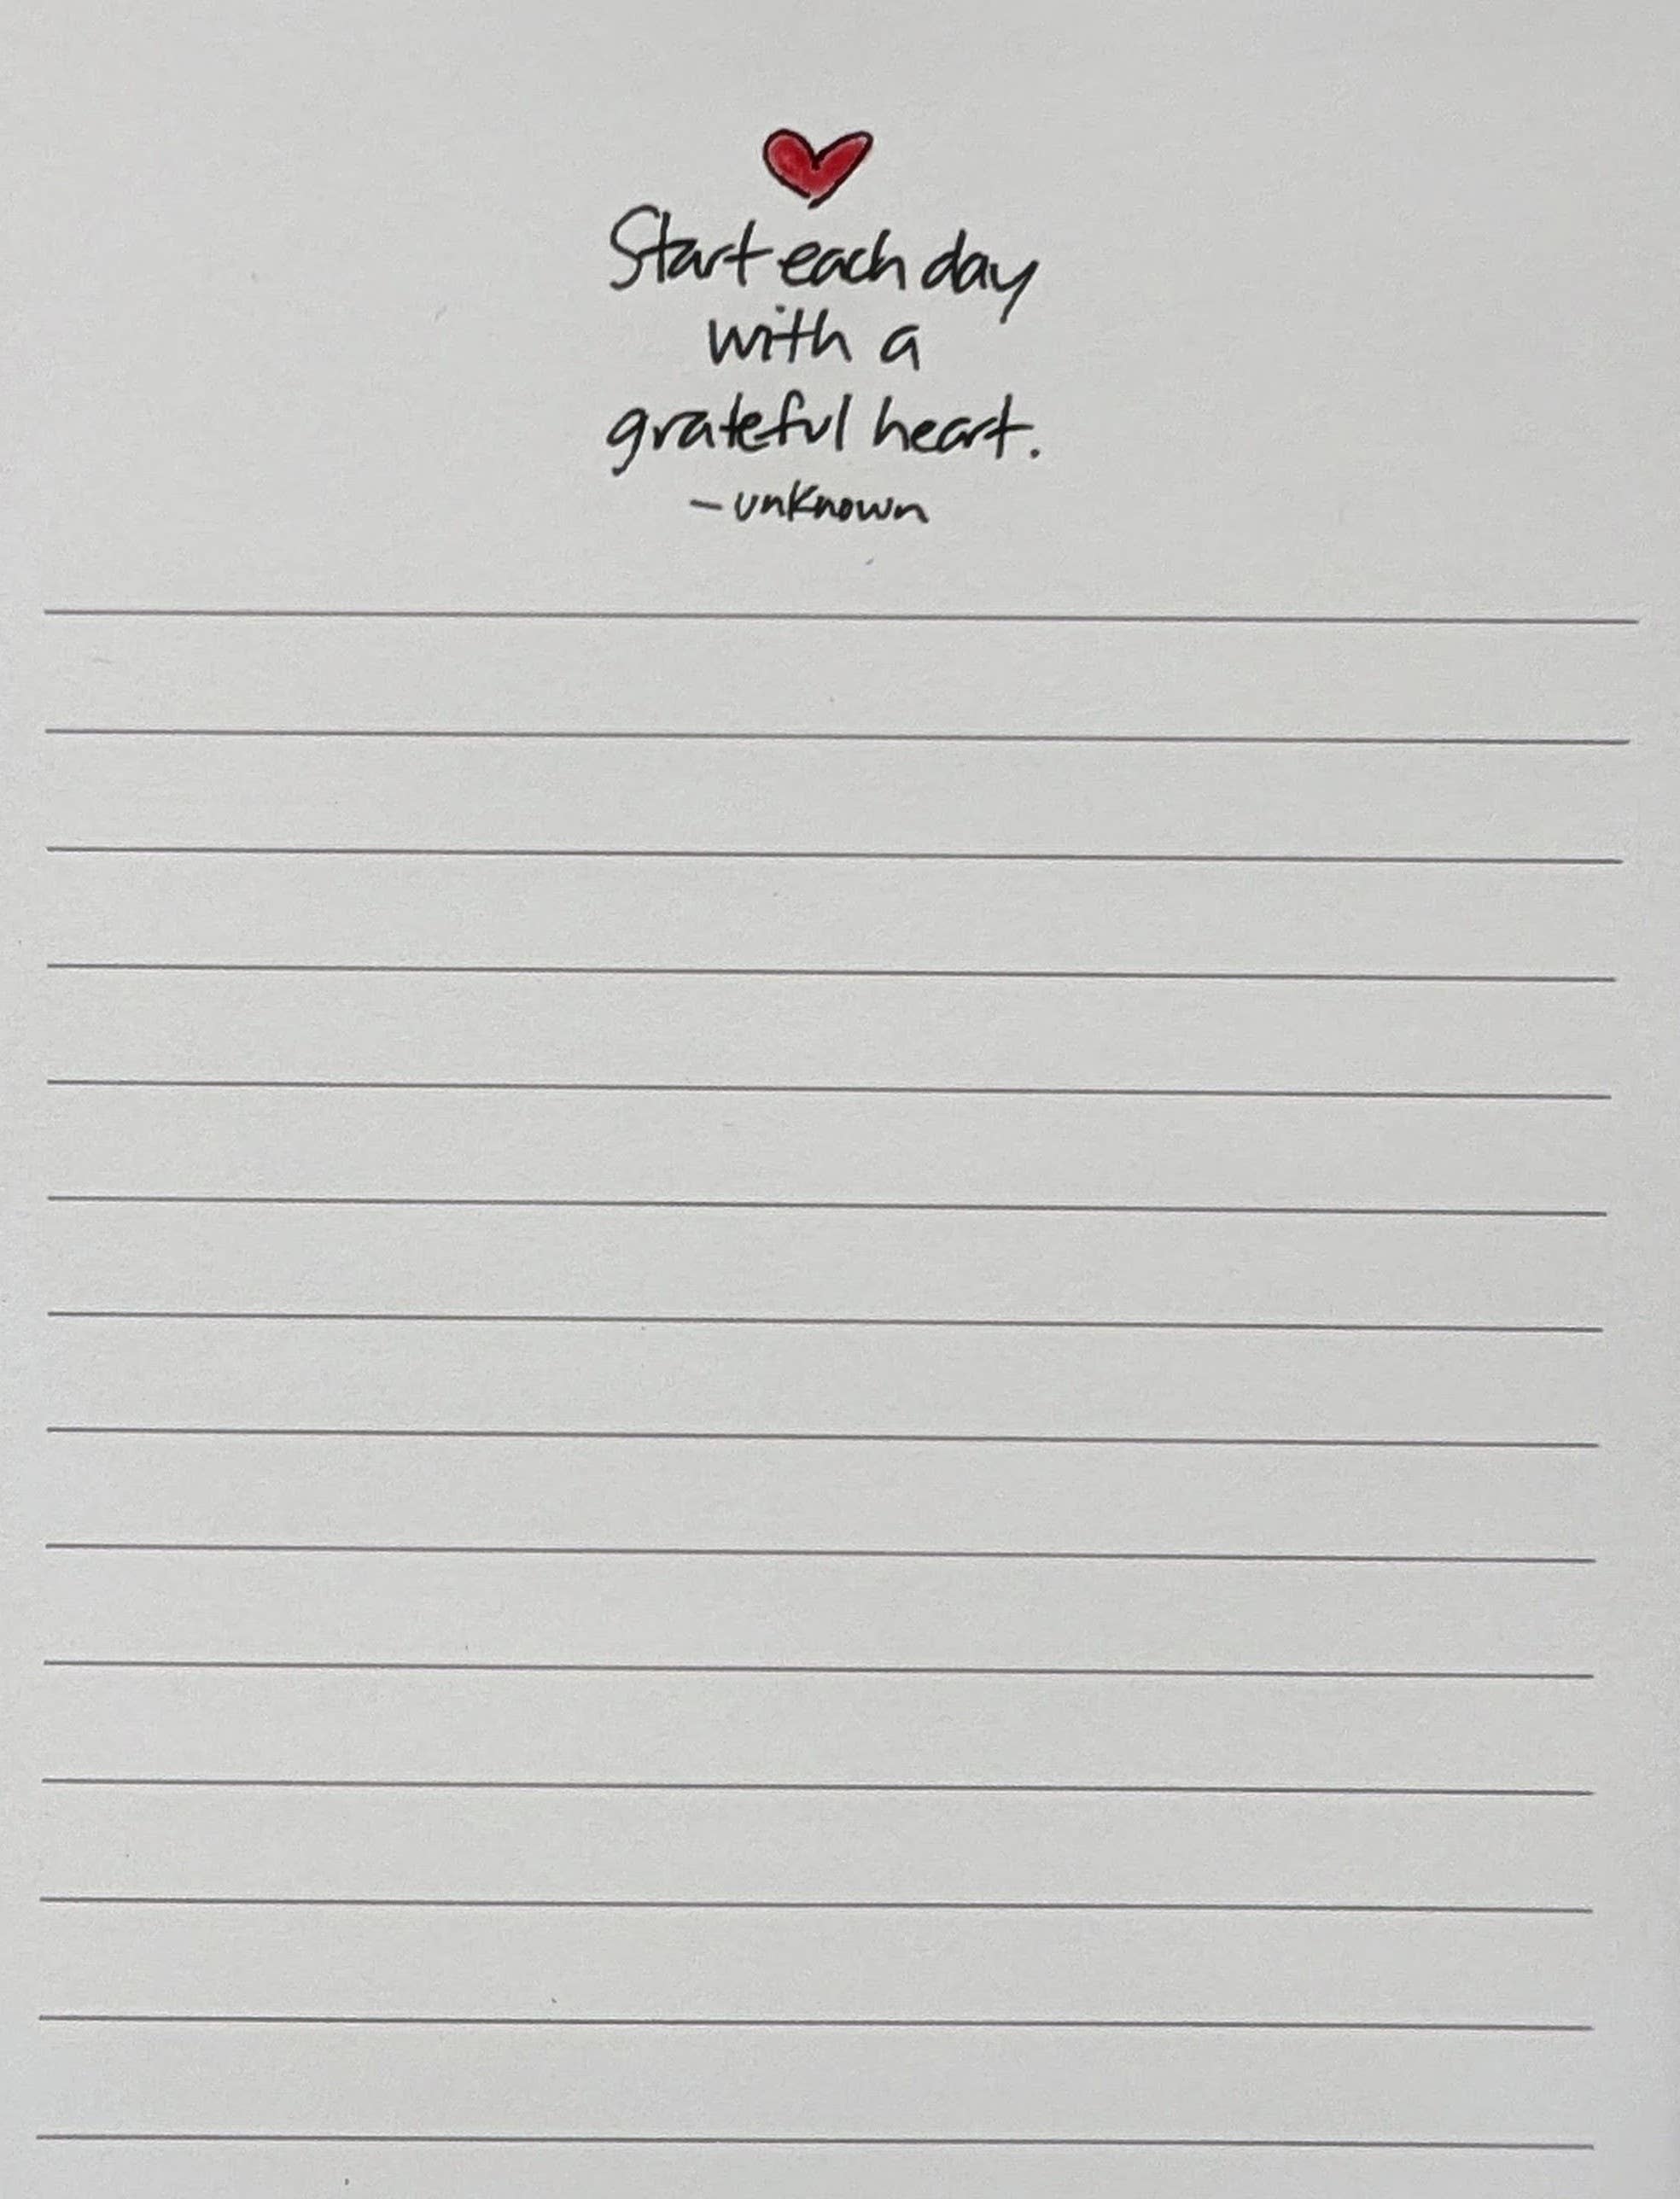 Start each day
with a
grateful heart.
- unknown